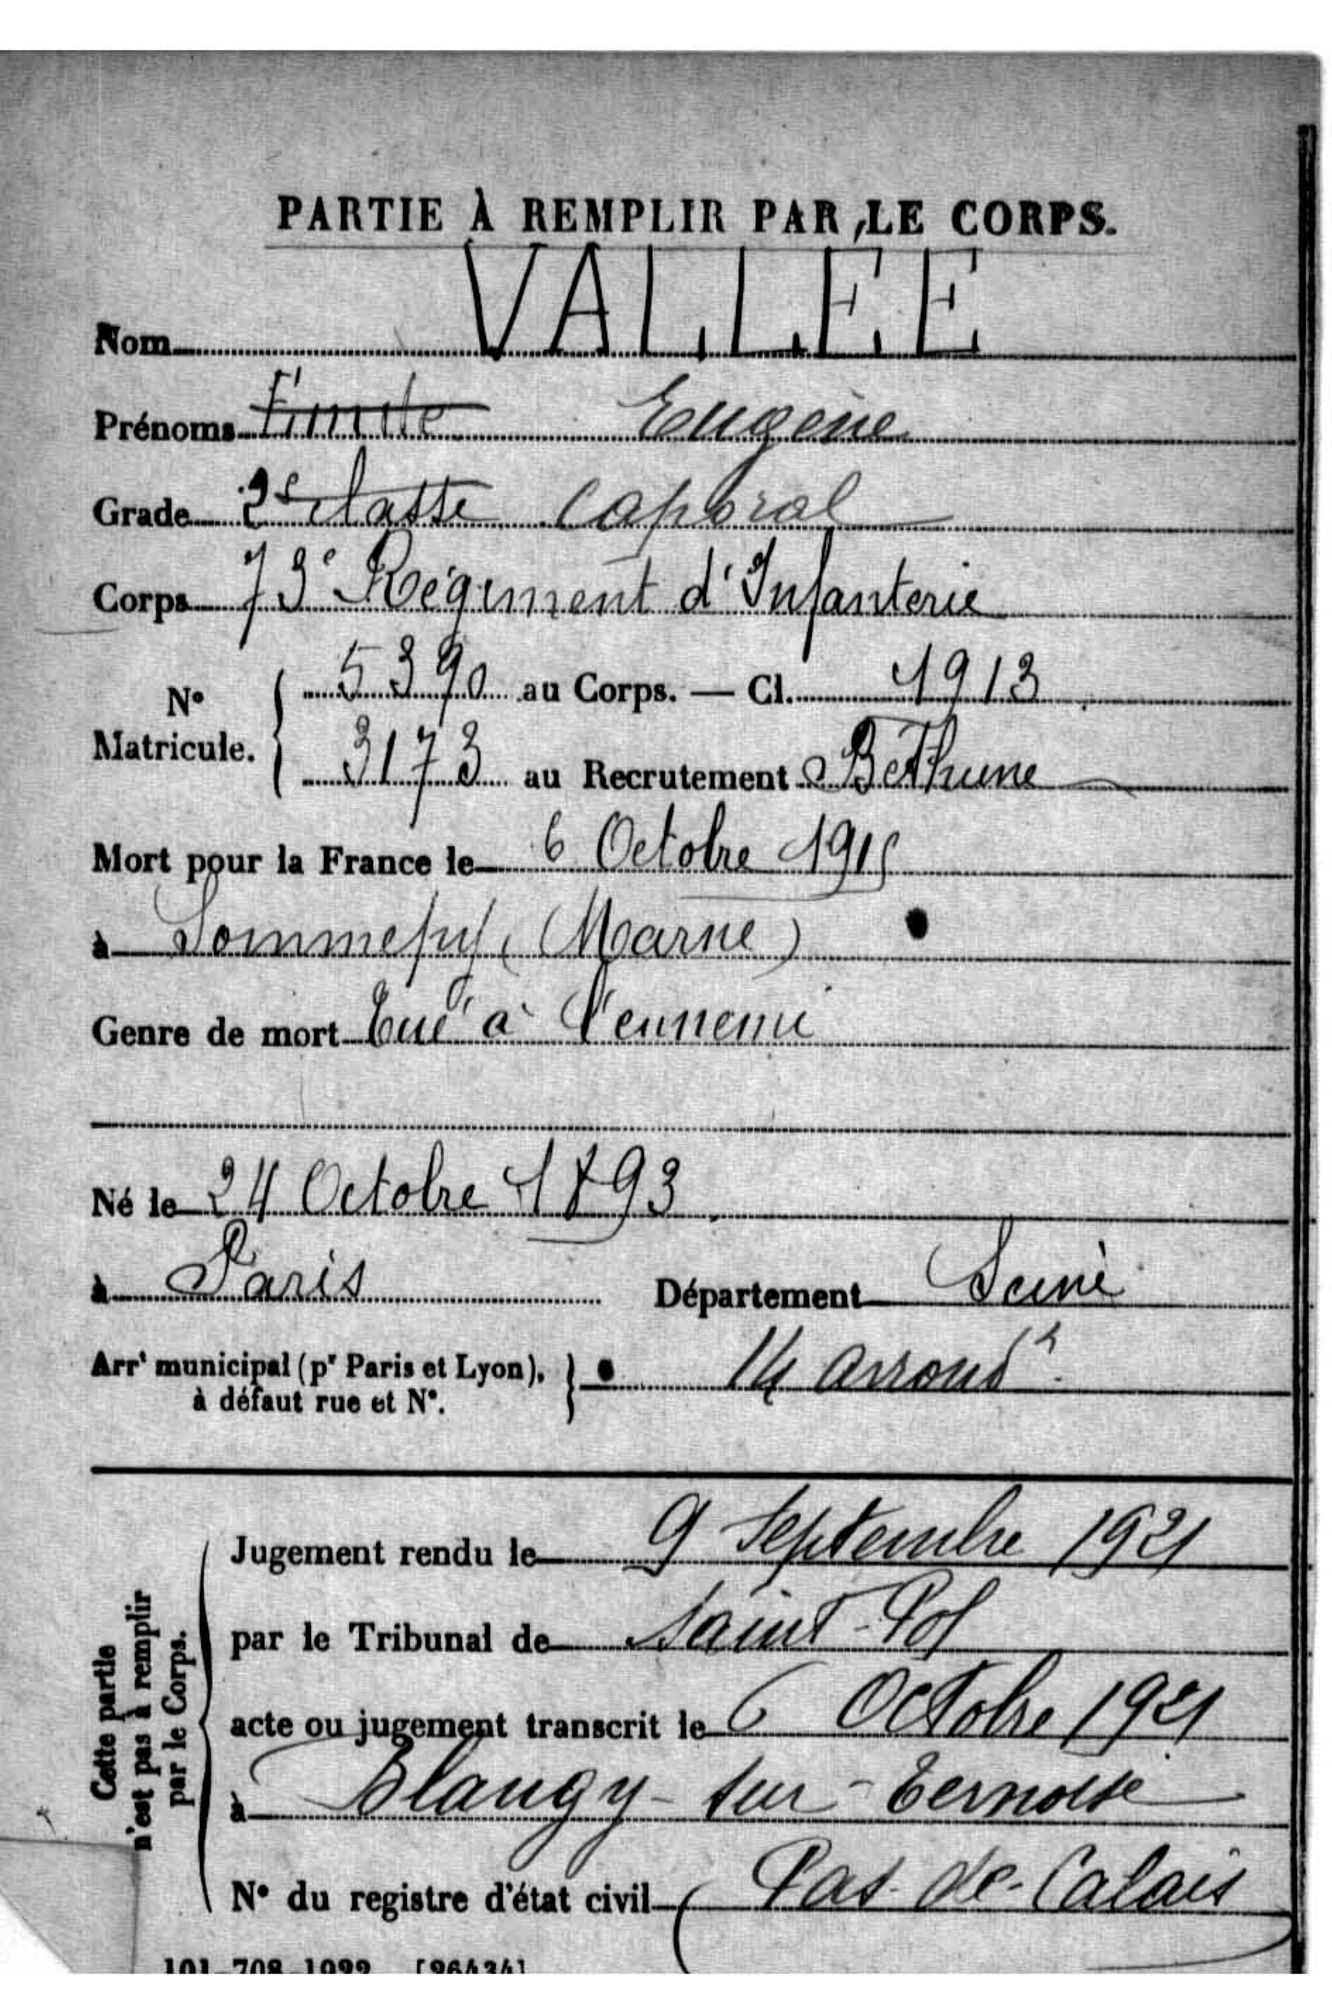 PARTIE À REMPLIR PAR LE CORPS.
Nom VALLEE
Prénoms Emile Eugène
Grade 2e classe Caporal
Corps 73e Régiment d'Infanterie
N° Matricule. 5390 au Corps. — Cl. 1913
3173 au Recrutement Béthune
Mort pour la France le 6 Octobre 1915
à Sommepy (Marne)
Genre de mort Tué à l'ennemi
Né le 24 Octobre 1893
à Paris Département Seine
Arrt municipal (pr Paris et Lyon), 14 arrondt
à défaut rue et N°.
Cette partie
n'est pas à remplir
par le Corps.
Jugement rendu le 9 Septembre 1921
par le Tribunal de Saint-Pol
acte ou jugement transcrit le 6 Octobre 1921
à Blangy-sur-Ternoise
N° du registre d'état civil (Pas-de-Calais
101-708-1922. [26434]